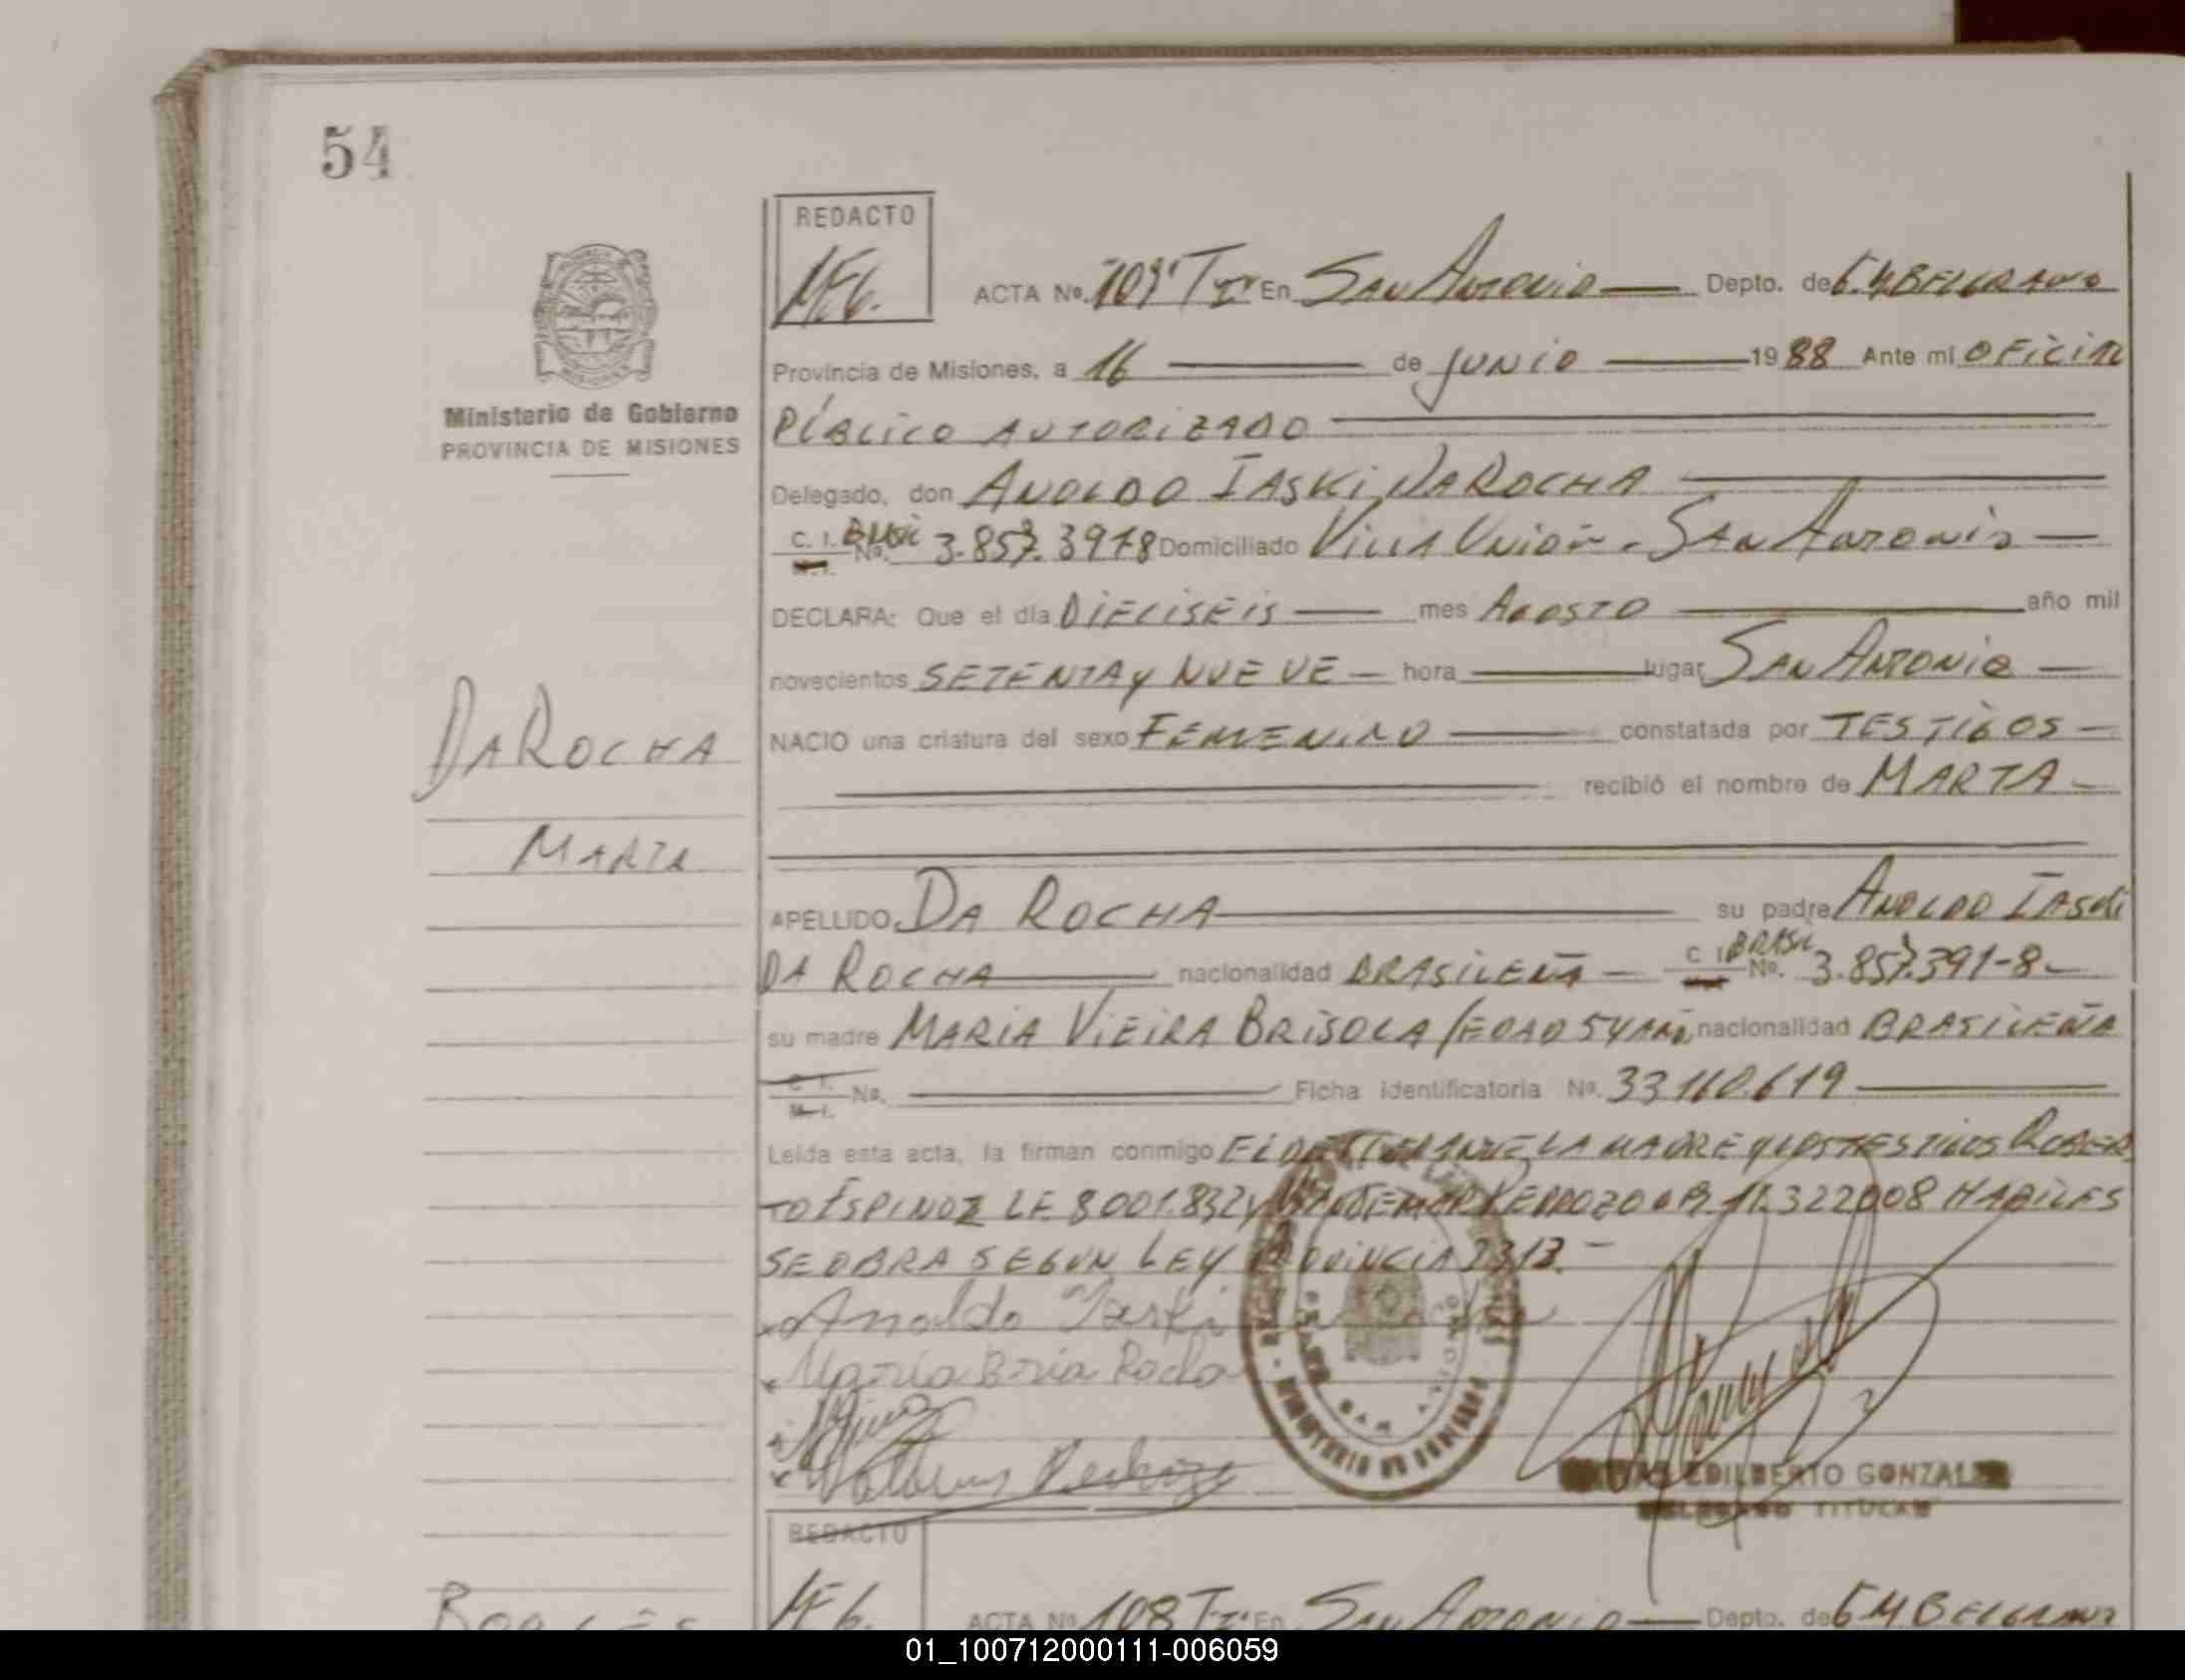 54
REDACTO
ACTA No. 109 T I En SAN ANTONIO Depto. de G.M BELGRANO
Provincia de Misiones, a 16 de JUNIO 1988 Ante mi OFICIAL
PUBLICO AUTORIZADO
Ministerio de Gobierno
PROVINCIA DE MISIONES
Delegado, don ANOLDO IASKI DA ROCHA
C. I. BRASIL No. 3.857.3918 Domiciliado VILLA UNION - SAN ANTONIO
DECLARA: Que el día DIECISEIS mes AGOSTO año mil
novecientos SETENTA Y NUEVE hora lugar SAN ANTONIO
NACIO una criatura del sexo FEMENINO constatada por TESTIGOS
recibió el nombre de MARTA
DA ROCHA
MARTA
APELLIDO DA ROCHA su padre ANOLDO IASKI
DA ROCHA nacionalidad BRASILEÑA C I BRASIL No. 3.857.391-8
su madre MARIA VIEIRA BRISOLA / EDAD 54 AÑ nacionalidad BRASILEÑA
C. I. M. I. No. Ficha Identificatoria No. 33.160.619
Leída esta acta, la firman conmigo EL LA MADRE Y LOS TESTIGOS ROBER
TO ESPINOZ LE 8001.832 Y 11.322008 HABILES
SE OBRA SEGUN LEY PROVINCIA 2313.-
Anoldo Iaski
Maria Bria Rocha
MINISTERIO DE GOBIERNO
EDILBERTO GONZALEZ
TITULAR
REDACTO
ACTA No. 108 T I En SAN ANTONIO Depto. de G M BELGRANO
01_100712000111-006059